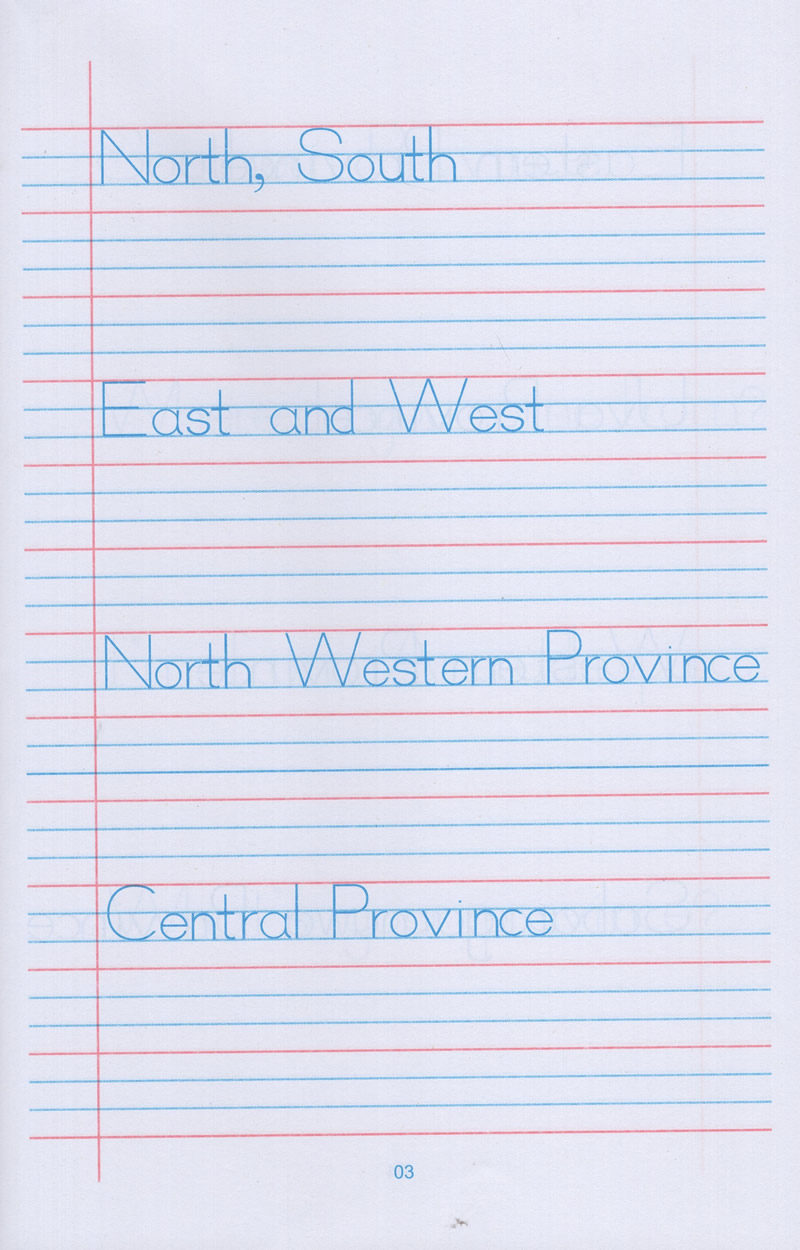 North, South
East and West
North Western Province
Central Province
03